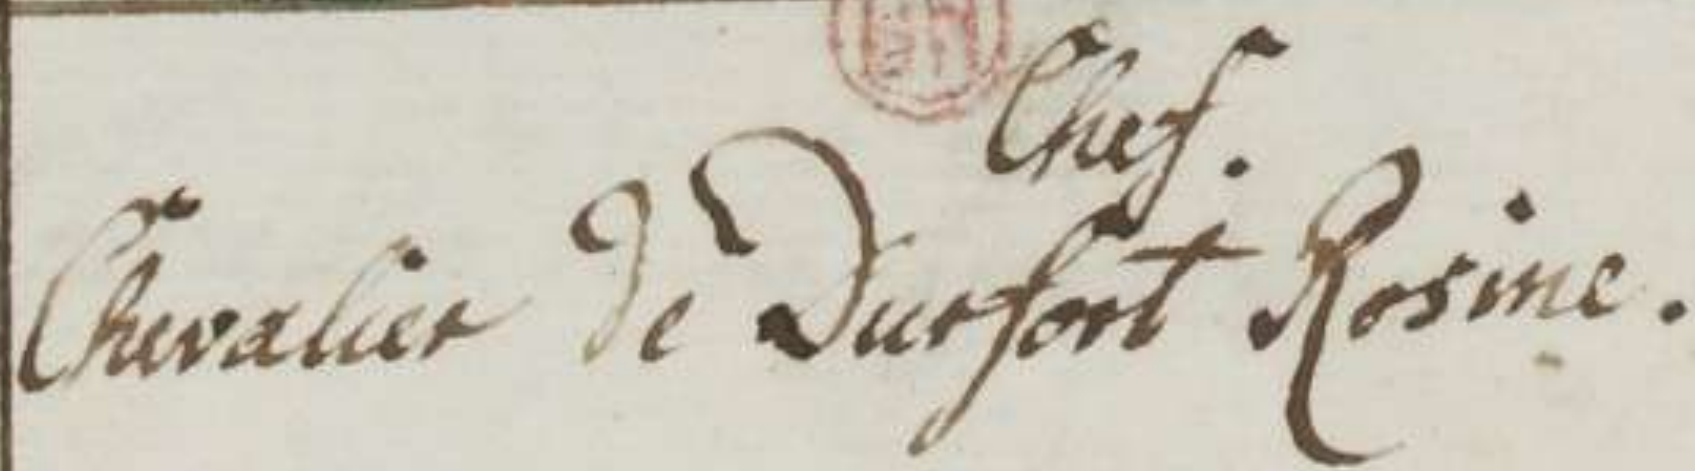 Chef.
Chevalier de Durfort Rosine.